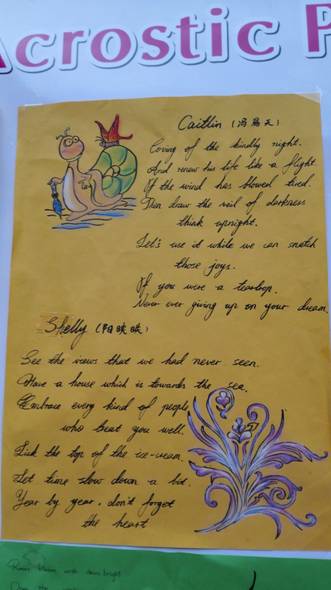 Acrostic P
Caitlin (冯
Coving of the kindly night.
And renew his life like a flight.
If the wind has blowed tired.
Then draw the veil of darkness
think upnight.
Let's use it while we can snatch
those joys.
If you were a teardrop.
Never ever giving up on your dream.
Shelly (阳
See the views that we had never seen.
Have a house which is towards the sea.
Embrace every kind of people
who beat you well.
Lick the top of the ice-cream.
Let time slow down a bit.
Year by year, don't forget
the heart